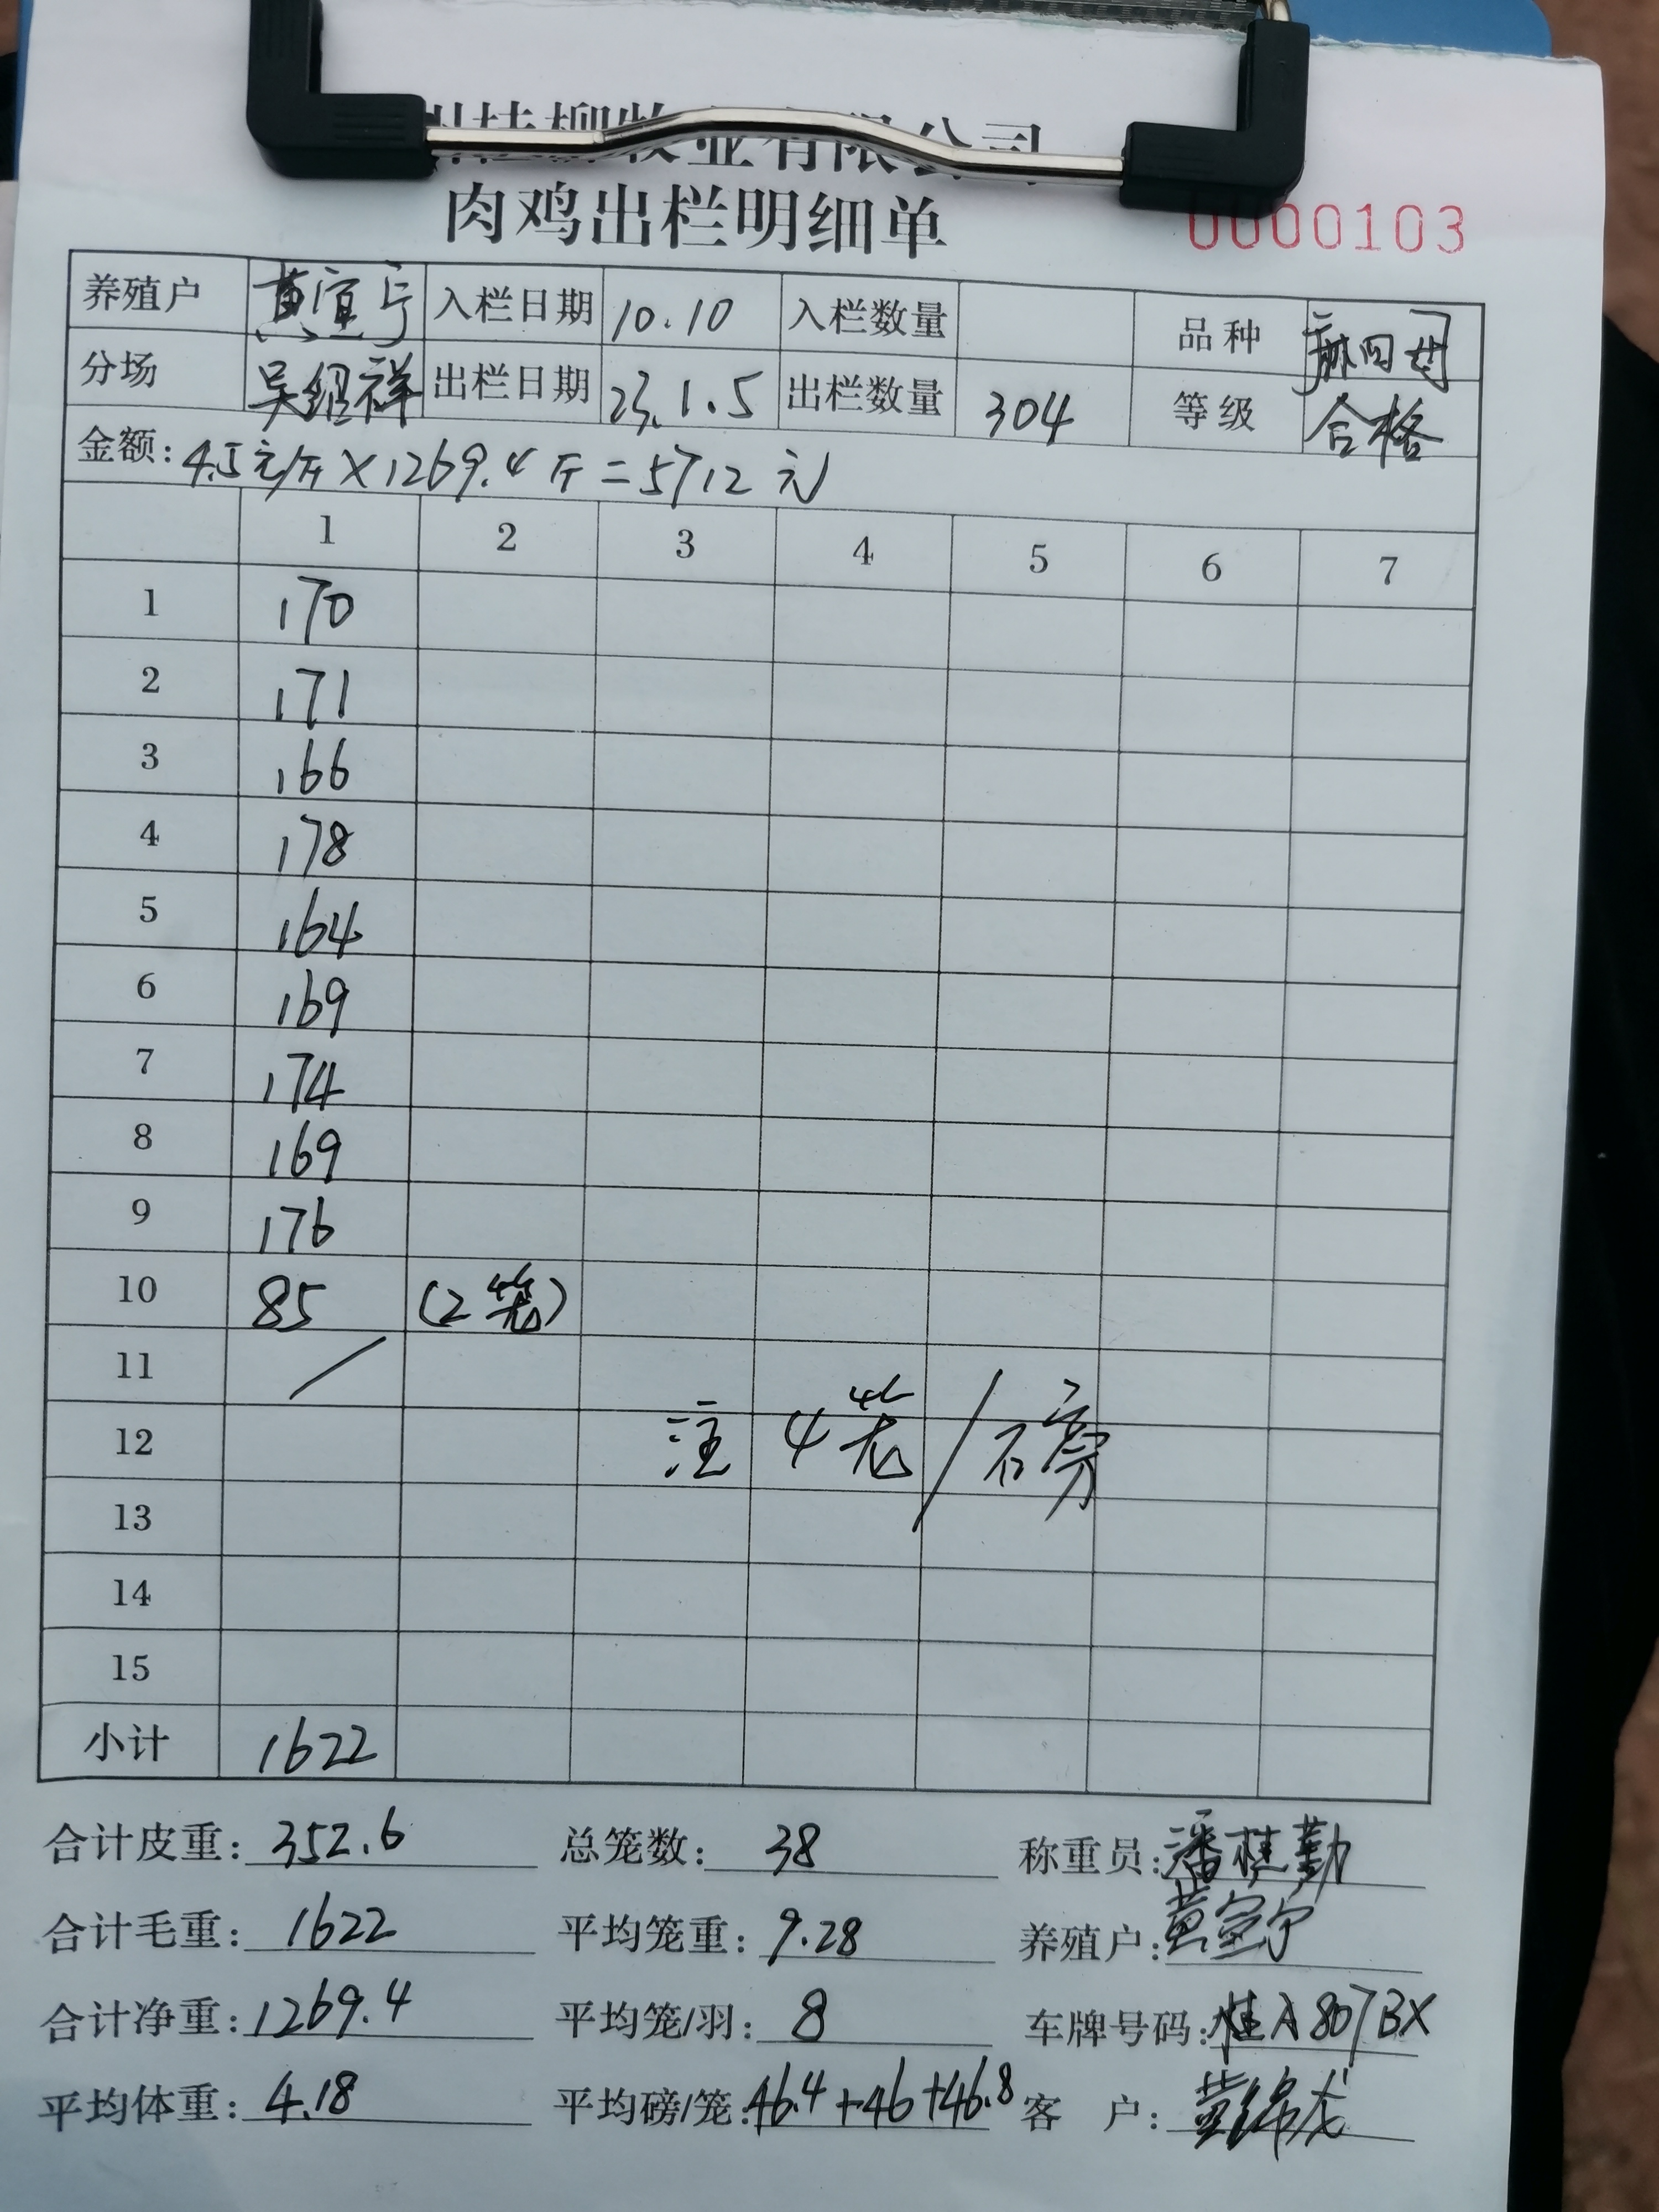 州桂柳牧业有限公司
肉鸡出栏明细单
0000103
养殖户 黄宣宁 入栏日期 10.10 入栏数量 品种
分场 吴绍祥 出栏日期 23.1.5 出栏数量 304 等级 合格
金额: 4.5元/斤×1269.4斤=5712元
1 2 3 4 5 6 7
1 170
2 171
3 166
4 178
5 164
6 169
7 174
8 169
9 176
10 85 (2笼)
11 /
12 注 4笼/磅
13
14
15
小计 1622
合计皮重: 352.6 总笼数: 38 称重员: 潘桂勤
合计毛重: 1622 平均笼重: 9.28 养殖户: 黄宣宁
合计净重: 1269.4 平均笼/羽: 8 车牌号码: 桂A807BX
平均体重: 4.18 平均磅/笼: 46.4+46+46.8 客 户: 黄锦龙